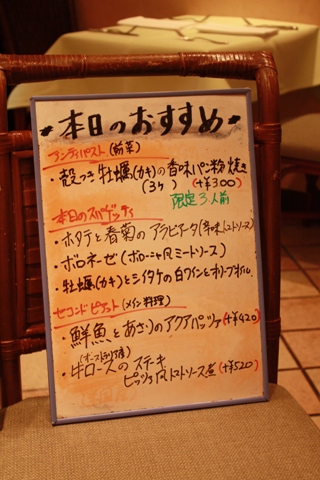 本日のおすすめ
アンティパスト(前菜)
・殻つき牡蠣(カキ)の香味パン粉焼き
(3ヶ) (+¥300)
限定3人前
本日のスパゲッティ
・ホタテと春菊のアラビアータ(辛味トマトソース)
・ボロネーゼ(ボローニャ風ミートソース)
・牡蠣(カキ)とシイタケの白ワインとオリーブオイル
セコンドピアット(メイン料理)
・鮮魚とあさりのアクアパッツァ(+¥420)
(オーストラリア産)
・牛ロースのステキ
ピッツァ風トマトソース煮(+¥520)